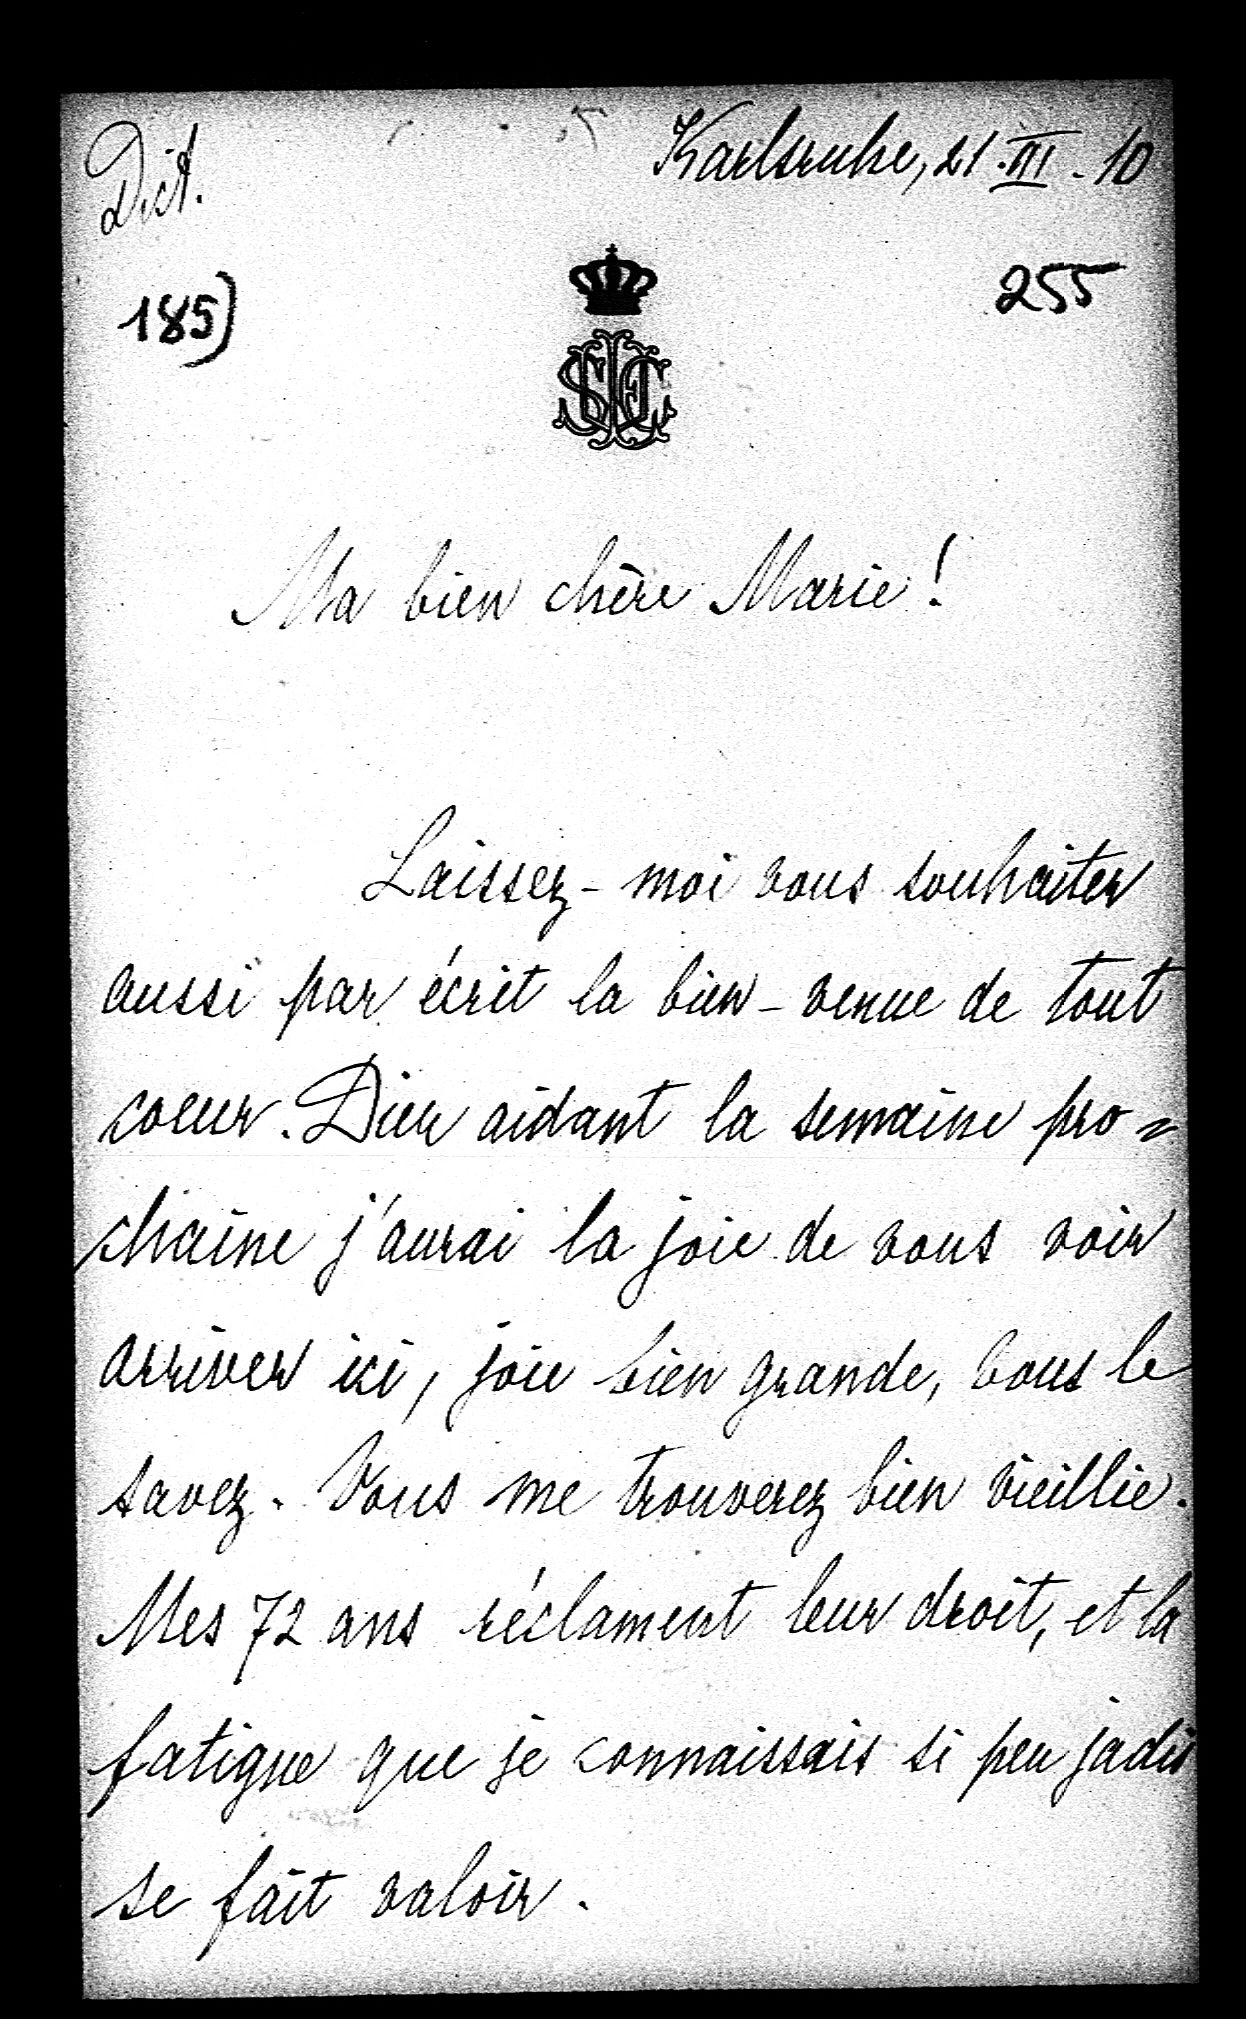 Dict.
Karlsruhe, 21. III. 10
185)
255
Ma bien chère Marie!
Laissez-moi vous souhaiter
aussi par écrit la bien-venue de tout
coeur. Dieu aidant la semaine pro=
chaine j'aurai la joie de vous voir
arriver ici, joie bien grande, vous le
savez. Vous me trouverez bien vieillie.
Mes 72 ans réclament leur droit, et la
fatigue que je connaissais si peu jadis
se fait valoir.